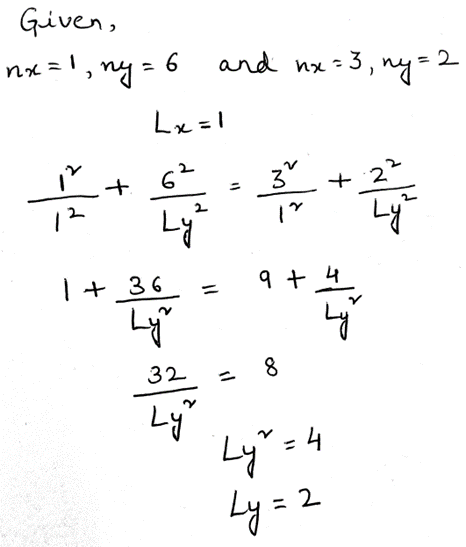 Given,
nx = 1, ny = 6 and nx = 3, ny = 2
Lx = 1
1²/1² + 6²/Ly² = 3²/1² + 2²/Ly²
1 + 36/Ly² = 9 + 4/Ly²
32/Ly² = 8
Ly² = 4
Ly = 2